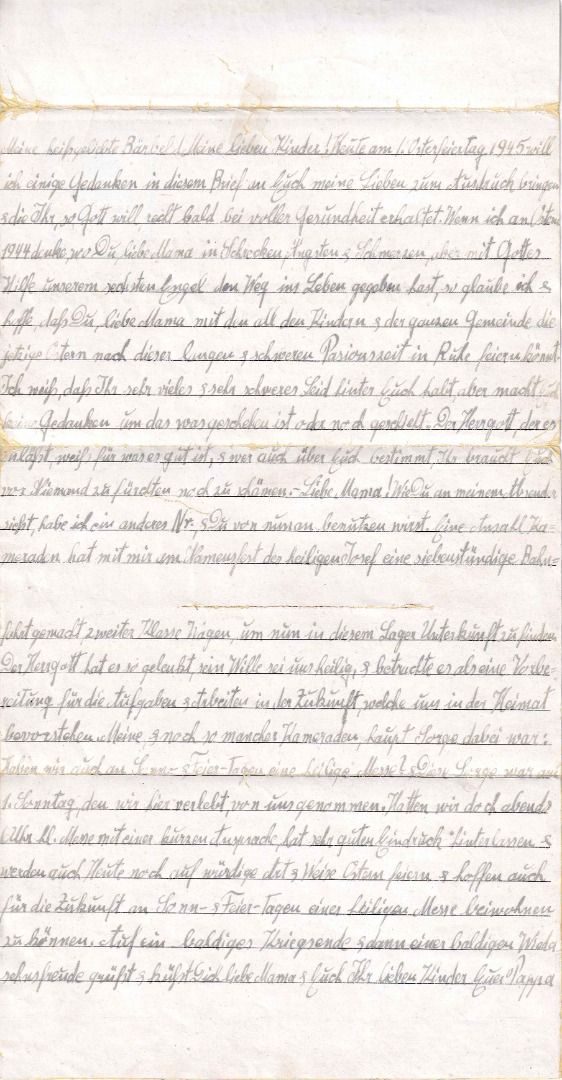 Meine heißgeliebte Bärbel! Meine lieben Kinder! Heute am 1. Osterfeiertag 1945 will
ich einige Gedanken in diesem Brief an Euch meine Lieben zum Ausdruck bringen
& die Ihr, so Gott will, recht bald bei voller Gesundheit erhaltet. Wenn ich an Ostern
1944 denke, wo Du, liebe Mama in Schrecken, Ängsten & Schmerzen, aber mit Gottes
Hilfe unserem sechsten Engel den Weg ins Leben gegeben hast, so glaube ich &
hoffe, daß Du, liebe Mama mit den all den Kindern & der ganzen Gemeinde die
jetzige Ostern nach dieser langen & schweren Pasionszeit in Ruhe feiern könnt.
Ich weiß, daß Ihr sehr vieles & sehr schweres Leid hinter Euch habt, aber macht Euch
keine Gedanken um das was geschehen ist oder noch geschieht. Der Herrgott, der es
zuläßt, weiß für was es gut ist, & wer auch über Euch bestimmt, Ihr braucht Euch
vor Niemand zu fürchten noch zu schämen. - Liebe Mama! Wie Du an meinem Absender
siehst, habe ich ein anderes Nr. & Du von nun an benutzen wirst. Eine Anzahl Ka=
meraden hat mit mir am Namensfest des heiligen Josef eine siebenstündige Bahn=
fahrt gemacht zweiter Klasse Wagen, um nun in diesem Lager Unterkunft zu finden.
Der Herrgott hat es so gelenkt, sein Wille sei uns heilig, & betrachte es als eine Vorbe=
reitung für die Aufgaben & Arbeiten in der Zukunft, welche uns in der Heimat
bevorstehen. Meine, & noch so mancher Kameraden, haupt Sorge dabei war:
haben wir auch an Sonn- & Feier-Tagen eine heilige Messe? & Diese Sorge war am
1. Sonntag, den wir hier verlebt, von uns genommen. Hatten wir doch abends
6 Uhr hl. Messe mit einer kurzen Ansprache, hat sehr guten Eindruck hinterlassen &
werden auch Heute noch auf würdige Art & Weise Ostern feiern & hoffen auch
für die Zukunft an Sonn- & Feier-Tagen einer heiligen Messe beiwohnen
zu können. Auf ein baldiges Kriegsende & dann einer baldigen Wieder
sehnsfreude grüßt & küßt Dich liebe Mama & Euch Ihr lieben Kinder Euer Pappa